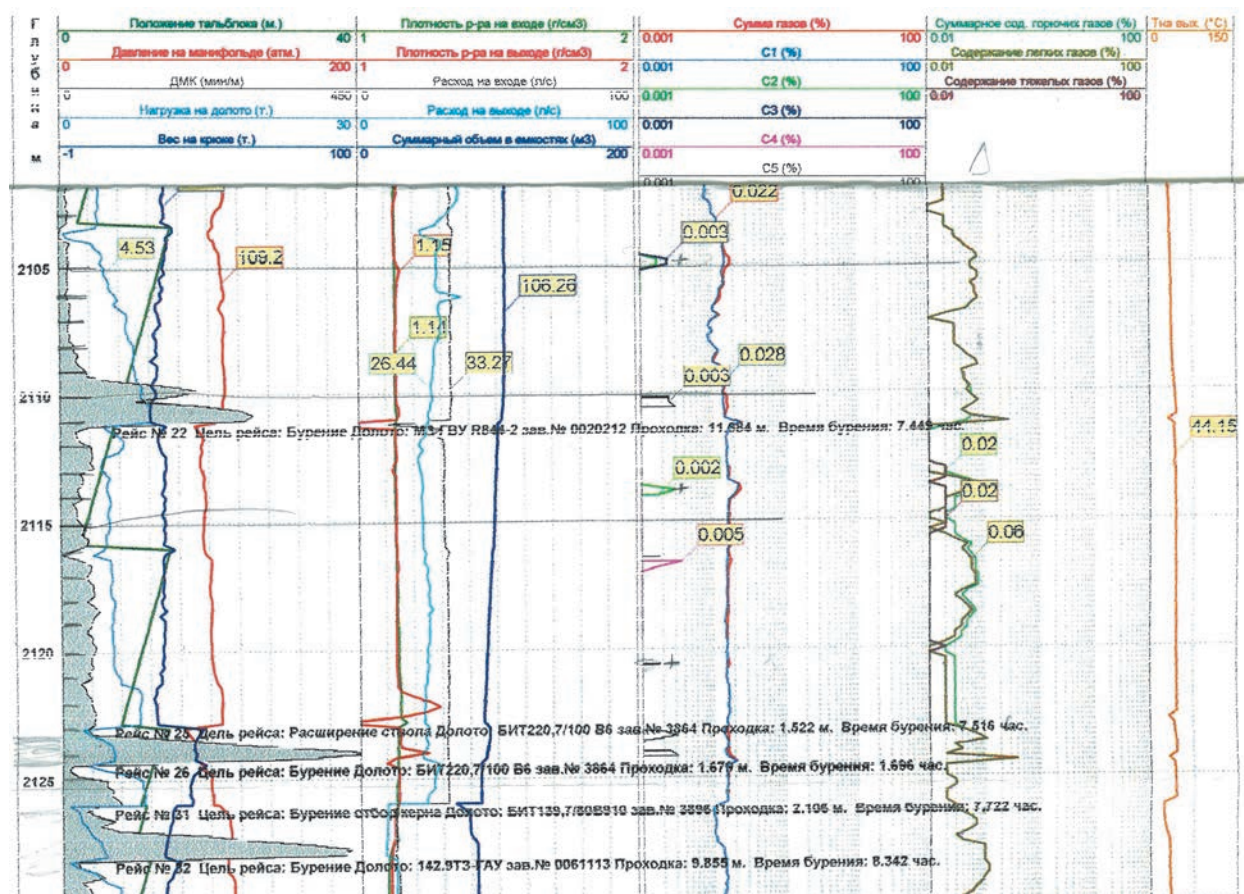 Глубина м.
Положение тальблока (м.)
0 40
Давление на манифольде (атм.)
0 200
ДМК (мин/м)
0 450
Нагрузка на долото (т.)
0 30
Вес на крюке (т.)
-1 100
Плотность р-ра на входе (г/см3)
1 2
Плотность р-ра на выходе (г/см3)
1 2
Расход на входе (л/с)
0 100
Расход на выходе (л/с)
0 100
Суммарный объем в емкостях (м3)
0 200
Сумма газов (%)
0.001 100
С1 (%)
0.001 100
С2 (%)
0.001 100
С3 (%)
0.001 100
С4 (%)
0.001 100
С5 (%)
0.001 100
Суммарное сод. горючих газов (%)
0.01 100
Содержание легких газов (%)
0.01 100
Содержание тяжелых газов (%)
0.01 100
Тна вых. (°C)
0 150
0.022
4.53
109.2
1.15
0.003
2105
106.26
1.14
26.44
33.27
0.028
0.003
2110
Рейс № 22 Цель рейса: Бурение Долото: ВУ R844-2 зав.№ 0020212 Проходка: 11.584 м. Время бурения: 7.449 час.
44.15
0.02
0.002
0.02
2115
0.005
0.06
2120
Рейс № 25 Цель рейса: Расширение ствола Долото: БИТ220,7/100 В6 зав.№ 3864 Проходка: 1.522 м. Время бурения: 7.516 час.
Рейс № 26 Цель рейса: Бурение Долото: БИТ220,7/100 В6 зав.№ 3864 Проходка: 1.679 м. Время бурения: 1.696 час.
2125
Рейс № 31 Цель рейса: Бурение отбор керна Долото: зав.№ Проходка: 2.106 м. Время бурения: 7.722 час.
Рейс № 32 Цель рейса: Бурение Долото: 142.9ТЗ-ГАУ зав.№ 0061113 Проходка: 9.855 м. Время бурения: 8.342 час.